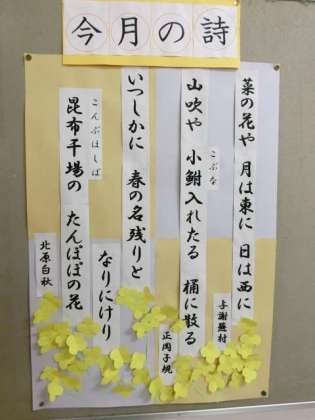 今月の詩
菜の花や 月は東に 日は西に
与謝蕪村
こぶな
山吹や 小鮒入れたる 桶に散る
正岡子規
いつしかに 春の名残りと
なりにけり
こんぶほしば
昆布干場の たんぽぽの花
北原白秋